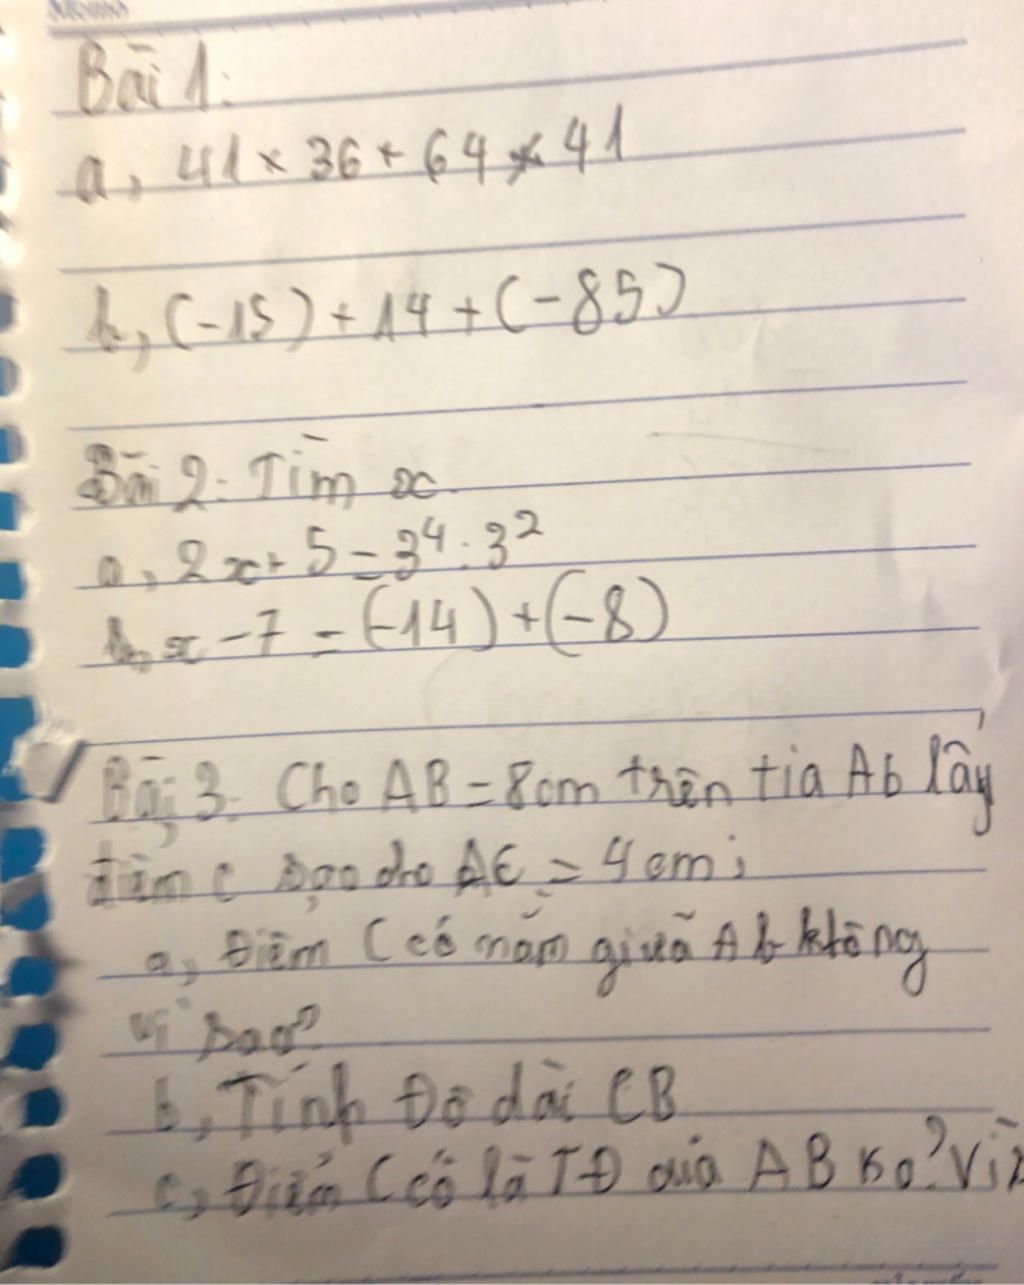 Memo
Bài 1:
a, 41 × 36 + 64 × 41
b, (-15) + 14 + (-85)
Bài 2: Tìm x
a, 2x + 5 = 3⁴ : 3²
b, x - 7 = (-14) + (-8)
Bài 3: Cho AB = 8cm trên tia Ab lấy
điểm C sao cho AC = 4cm;
a, Điểm C có nằm giữa A b không
vì sao?
b, Tính Độ dài CB
c, Điểm C có là TĐ của AB ko? Vì